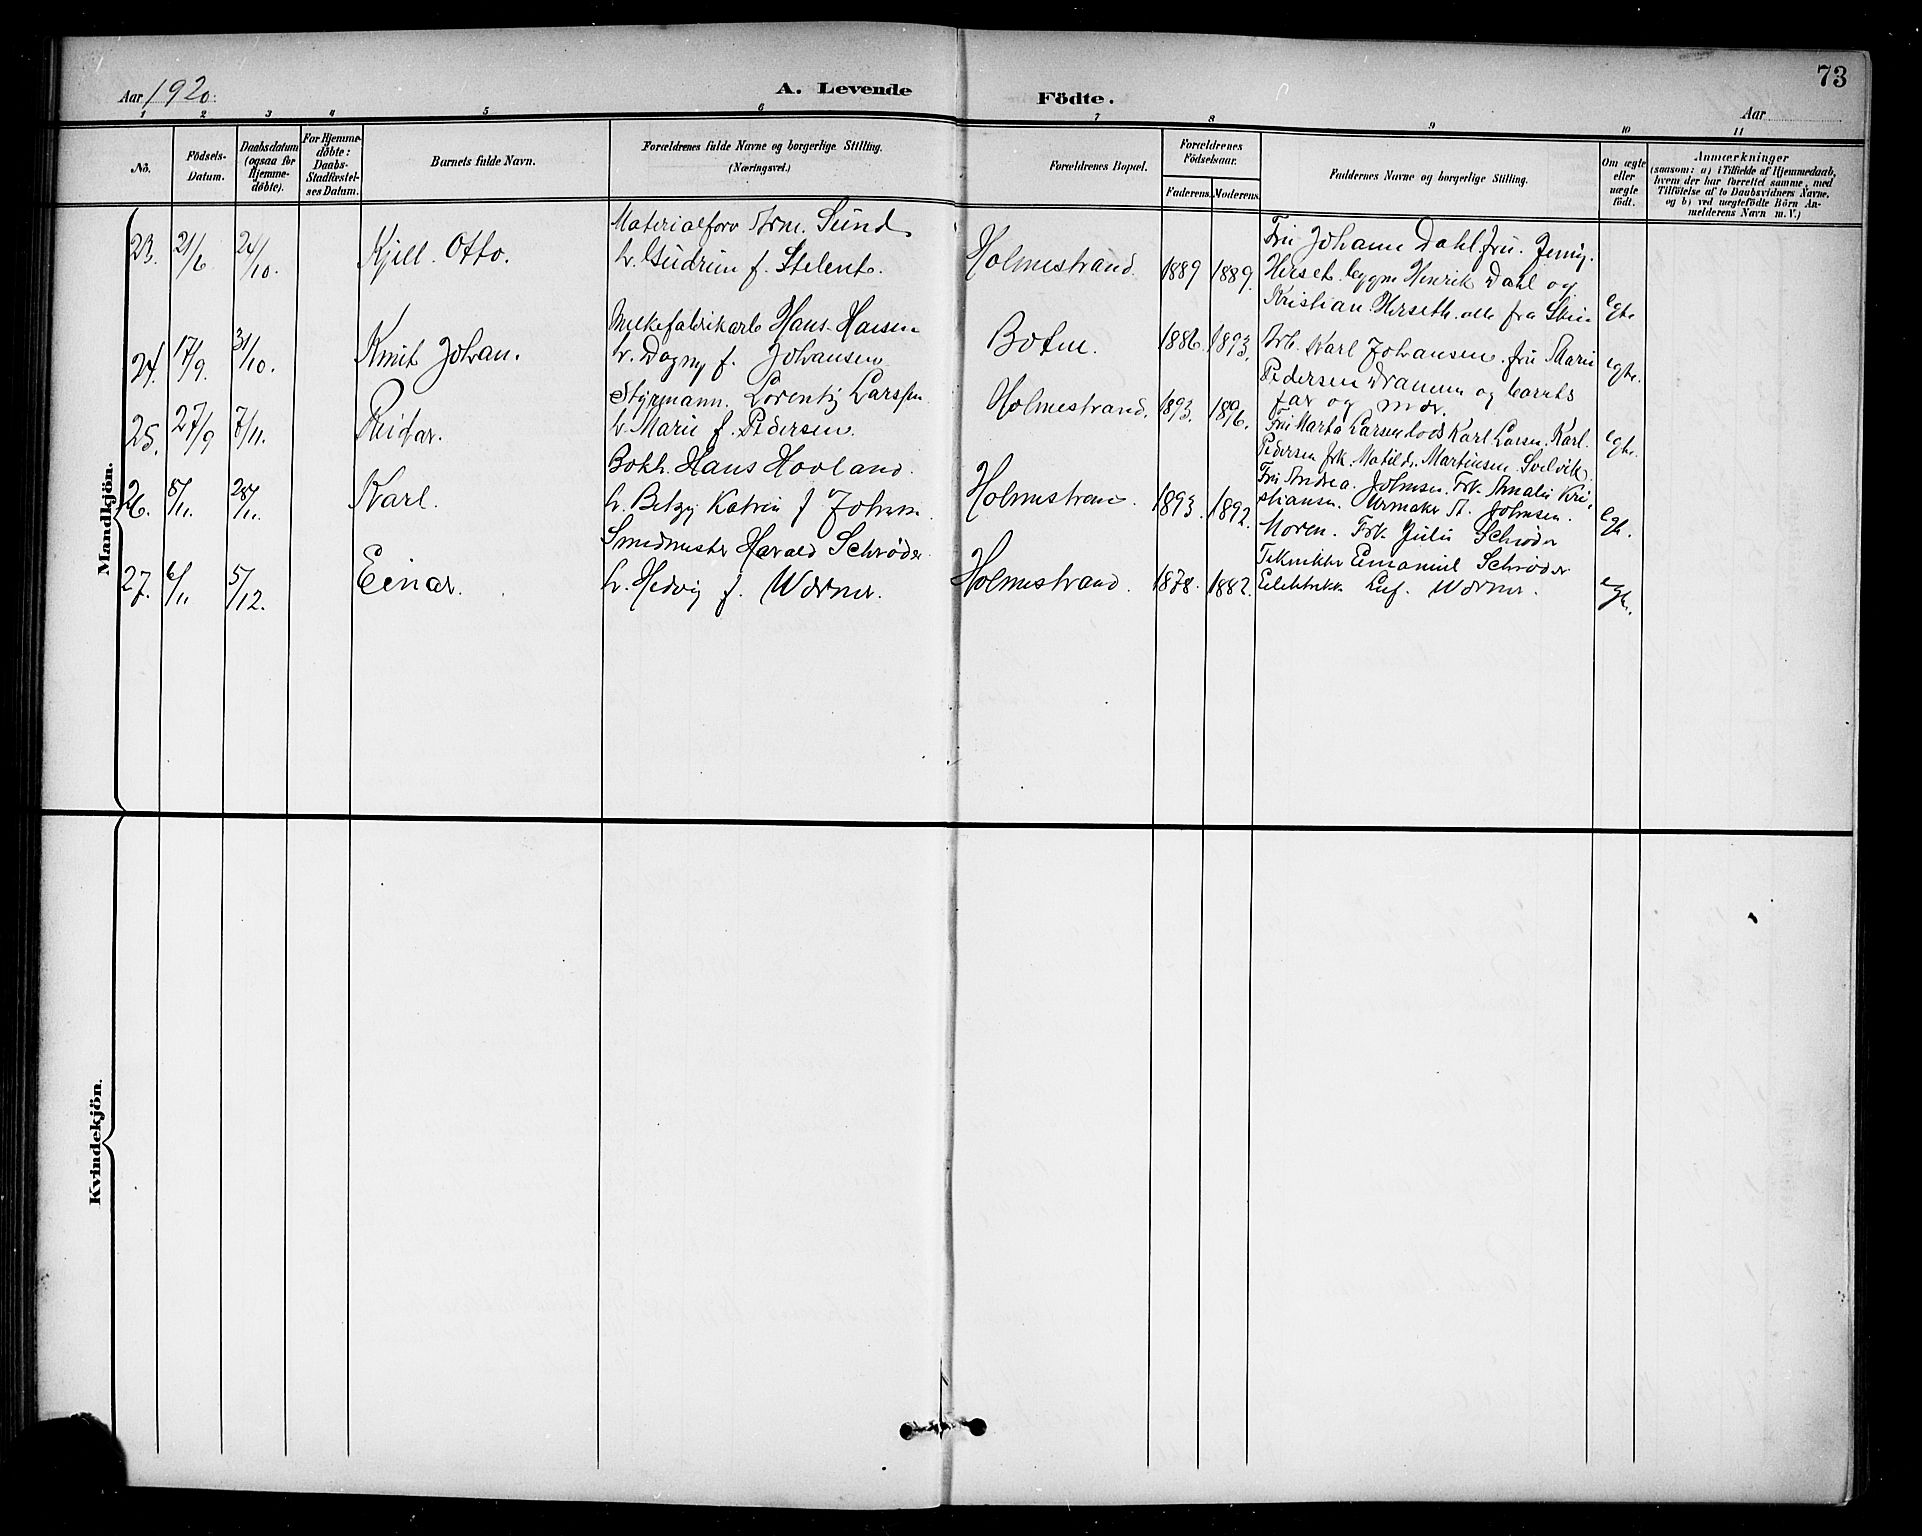 Aar 1920. A. Levende Födte. Aar 73
1 2 3 4 5 6 7 8 9 10 11
No. Födsels-Datum. Daabsdatum (ogsaa for Hjemme-döbte). For Hjemme-döbte: Daabs-Stadfæstel-ses Datum. Barnets fulde Navn. Forældrenes fulde Navne og borgerlige Stilling. (Næringsvei.) Forældrenes Bopæl. Forældrenes Födselsaar. Faderens. Moderens. Faddernes Navne og borgerlige Stilling. Om ægte eller uægte födt. Anmærkninger (saasom: a) i Tilfælde af Hjemmedaab, hvem der har forrettet samme, med Tilföielse af to Daabsvidners Navne, og b) ved uægtefödte Börn An-melderens Navn m. V.)
Mandkjön.
23. 21/6 24/10. Kjell Otto. Materialforv Arne Sund
h. Gudrun f. Holmestrand. 1889 1889.
Fru Johanne Dahl, fru Jenny
Herseth Henrik Dahl og
Kristian Herseth alle fra egte
24. 17/9. 31/10. Knut Johan. Melkefabrikarb Hans Hansen
h. Dagny f. Johansen Botne. 1886. 1893.
Arb. Karl Johansen. fru Marie
Pedersen Drammen og barnets
far og mor. egte.
25. 27/9 7/11. Reidar. Styrmann. Lorentz Larssen
h. Marie f. Pedersen. Holmestrand. 1893. 1896.
Fru Marta Larsen Lods Karl Larsen. Karl
Pedersen frk. Matilde Martinsen Svelvik. egte.
26. 8/11. 28/11. Karl. Bokh. Hans Hovland.
h. Betzy Katrin f Johnsen. Holmestrand. 1893. 1892.
Fru Andrea Johnsen. Frk Amalie Kri-
stiansen. Urmaker A. Johnsen.
Moren. Frk Julie Schrøder egte.
27. 6/11 5/12. Einar. Smedmester Harald Schrøder
h. Hedvig f. Werner. Holmestrand. 1878. 1882.
Tekniker Emanuel Schrøder
Werner. egte.
Kvindekjön.